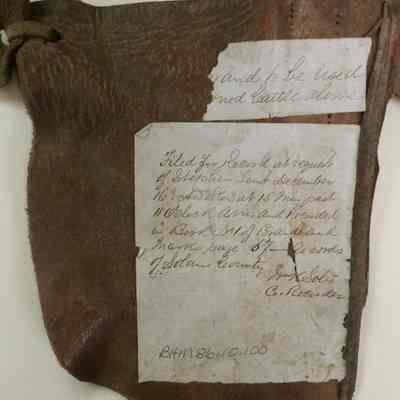 and to be used
Cattle alone
Filed for Record at request
of Stephen December
16th A.D. at 15 Min past
11 O'clock A.M. and Recorded
in Book of Brands and
Marks page 57 Records
of Solano County
Co. Recorder
BHM 86.10.100